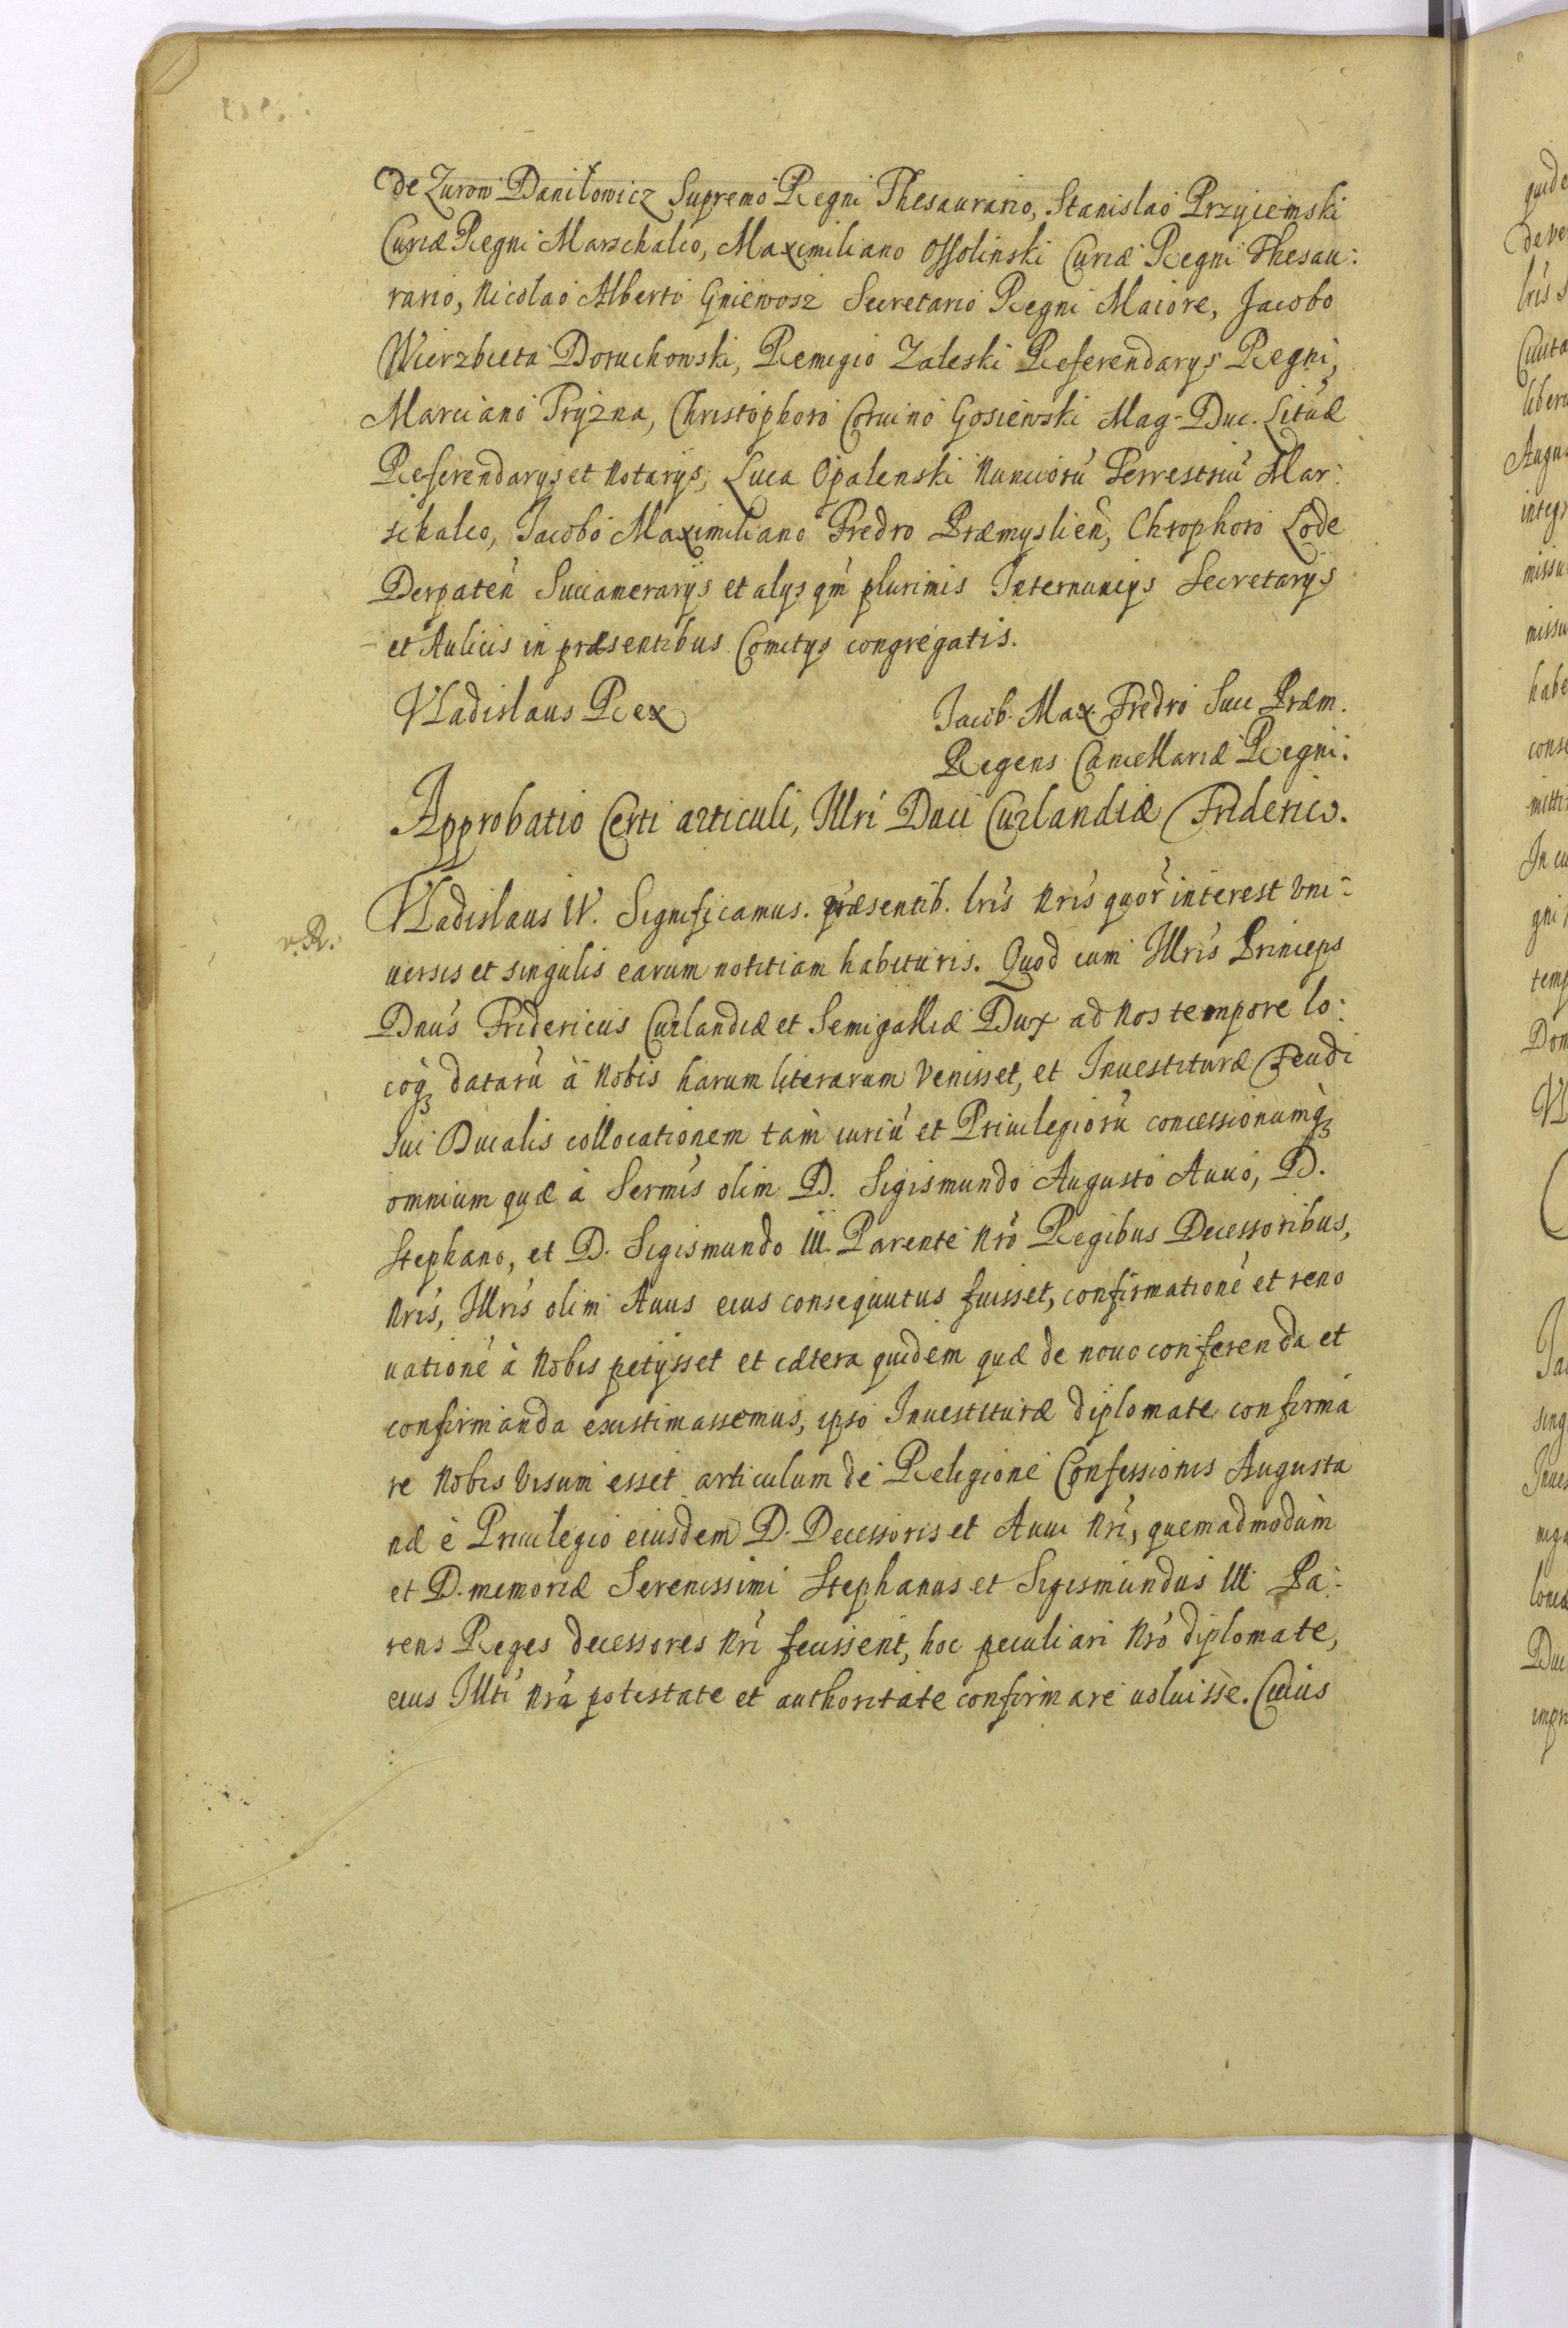 de Zurow Daniłowicz Supremo Regni Thesaurario, Stanislao Przyiemski
Curiæ Regni Marschalco, Maximiliano Ossolinski Curiæ Regni Thesau:
rario, Nicolao Alberto Gniewosz Secretario Regni Maiore, Jacobo
Wierzbieta Doruchowski, Remigio Zaleski Referendarys Regni,
Marciano Tryzna, Christophoro Coruino Gosiewski Mag. Duc. Lituæ
Referendarys et Notarys, Luca Opalenski Nunciorù Terrestriù Mar:
schalco, Jacobo Maximiliano Fredro Præmyslien̄, Chrophoro Lode
Derpaten̄ Succamerarijs et alys qm̄ plurimis Internuncys Secretarys
et Aulicis in præsentibus Comitys congregatis.
Vladislaus Rex
Jacob. Max. Fredro Succ Præm.
Regens Cancellariæ Regni.
Approbatio Certi articuli, Illri Duci Curlandiæ Friderico.
Vladislaus IV. Significamus. præsentib. lrīs Nrīs quor̄ interest vni-
uersis et singulis earum notitiam habituris. Quod cum Illrīs Princeps
Dnūs Fridericus Curlandiæ et Semigalliæ Dux ad Nos tempore lo:
coq̨ datarù à Nobis harum literarum venisset, et Inuestituræ Feudi
sui Ducalis collocationem tam̀ iuriù et Priuilegiorù concessionumq̨
omnium quæ à Sermīs olim D. Sigismundo Augusto Auuo, D.
Stephano, et D. Sigismundo III. Parente Nrō Regibus Decessoribus,
Nrīs, Illrīs olim Auus eius consequutus fuisset, confirmationē et reno
uationē à Nobis petijsset et cætera quidem quæ de nouo conferenda et
confirmanda existimassemus, ipso Inuestituræ diplomate confirma
re Nobis visum esset articulum de Religione Confessionis Augusta
næ è Priuilegio eiusdem D. Decessoris et Auui Nrī, quemadmodum̀
et D. memoriæ Serenissimi Stephanus et Sigismundus III. Pa:
rens Reges decessores Nrī fecissent, hoc peculiari Nrō diplomate,
eius Illti Nrā potestate et authoritate confirmare uoluisse. Cuius